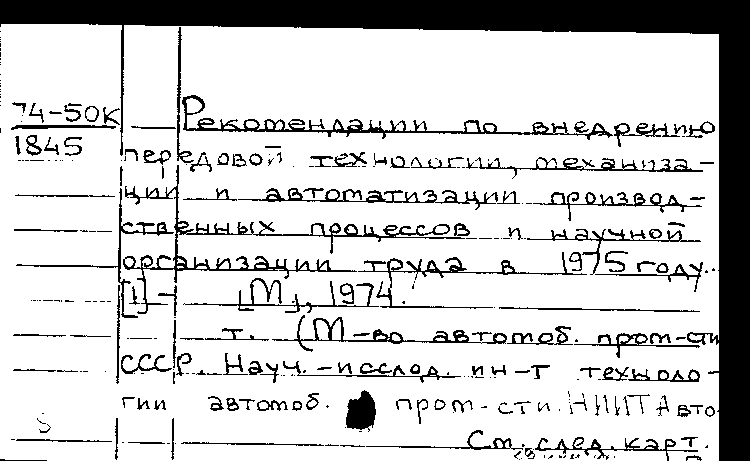 74-50К
1845
Рекомендации по внедрению
передовой технологии, механиза-
ции и автоматизации производ-
ственных процессов и научной
организации труда в 1975 году.
[1] - [М], 1974.
т. (М-во автомоб. пром-сти
СССР. Науч.-исслед. ин-т техноло-
гии автомоб. пром-сти НИИТАвто
См. след. карт.